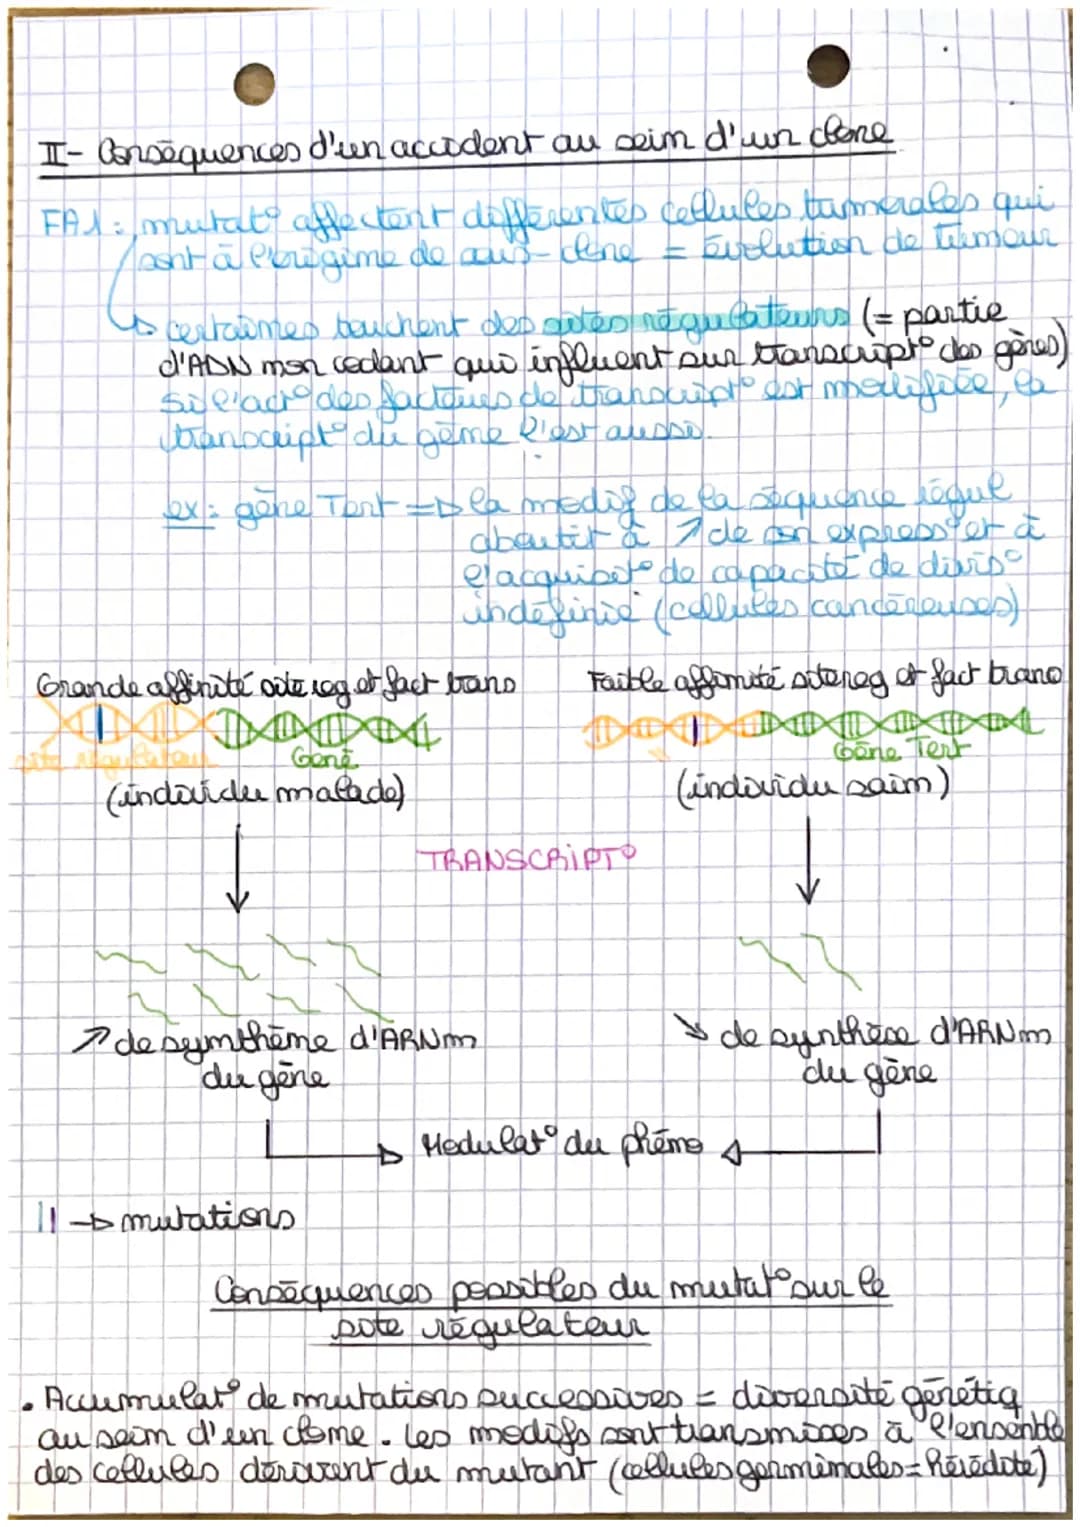 II- Conséquences d'un accident au sein d'un clone
FA1: mutat° affectent différentes cellules tumorales qui
sont à l'origine de sous-clone = évolution de tumeur
↳ certaines touchent des sites régulateurs (= partie
d'ADN non codant qui influent sur transcript° des gènes)
Si l'act° des facteurs de transcript° est modifiée, la
transcript° du gène l'est aussi.
ex: gène Tert => la modif de la séquence régul
aboutit à ↗ de son express° et à
l'acquisit° de capacité de divis°
indéfinie (cellules cancéreuses)
Grande affinité site reg et fact trans
Faible affinité site reg et fact trans
site régulateur
Gène
Gène Tert
(individu malade)
(individu sain)
TRANSCRIPT°
↗ de synthème d'ARNm
du gène
↘ de synthèse d'ARNm
du gène
Modulat° du phéno
|| → mutations
Conséquences possibles du mutat° sur le
site régulateur
• Accumulat° de mutations successives = diversité génétiq
au sein d'un clone. Les modifs sont transmises à l'ensemble
des cellules dérivent du mutant (cellules germinales = hérédité)